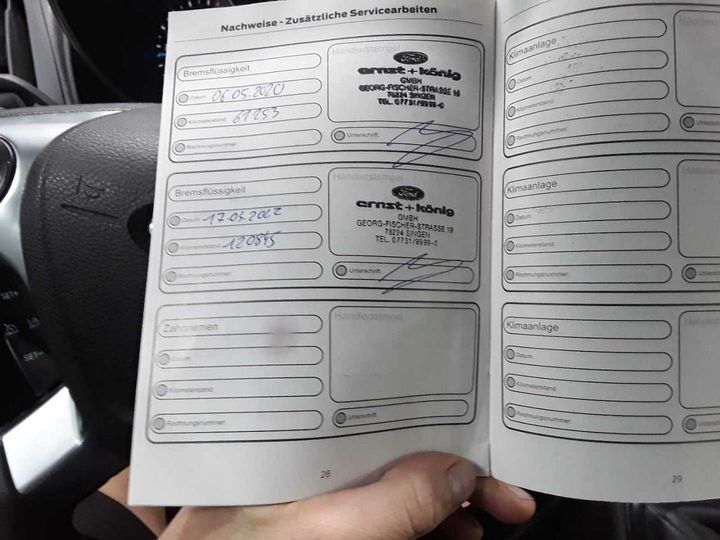 Nachweise - Zusätzliche Servicearbeiten
Bremsflüssigkeit
Datum: 06.05.2020
Kilometerstand: 61253
Rechnungsnummer:
Händlerstempel
Ford
ernst+könig
GMBH
GEORG-FISCHER-STRASSE 19
78224 SINGEN
TEL. 07731/9999-0
Unterschrift:
Bremsflüssigkeit
Datum: 17.03.2022
Kilometerstand: 120845
Rechnungsnummer:
Händlerstempel
Ford
ernst+könig
GMBH
GEORG-FISCHER-STRASSE 19
78224 SINGEN
TEL. 07731/9999-0
Unterschrift:
Zahnriemen
Datum:
Kilometerstand:
Rechnungsnummer:
Händlerstempel
Unterschrift:
28
Klimaanlage
Datum:
Kilometerstand:
Rechnungsnummer:
Klimaanlage
Datum:
Kilometerstand:
Rechnungsnummer:
Klimaanlage
Datum:
Kilometerstand:
Rechnungsnummer:
29
SET+
SET-